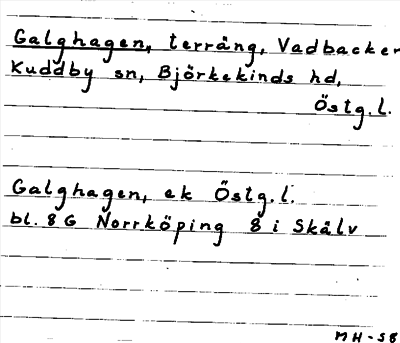 Galghagen, terräng, Vadbacken
Kuddby sn, Björkekinds hd,
Östg.l.
Galghagen, ek Östg.l.
bl. 8 G Norrköping 8 i Skälv
MH-58